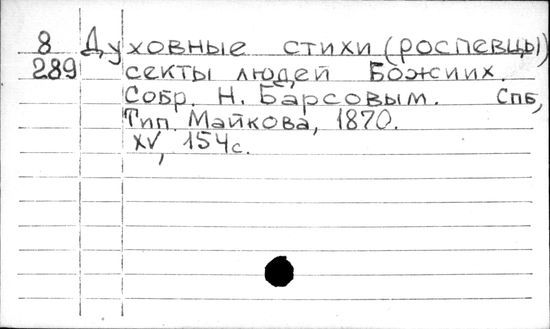 8 Духовные стихи (роспевцы)
289 секты людей Божиих.
Собр. Н. Барсовым. Спб,
Тип. Майкова, 1870.
XV, 154с.